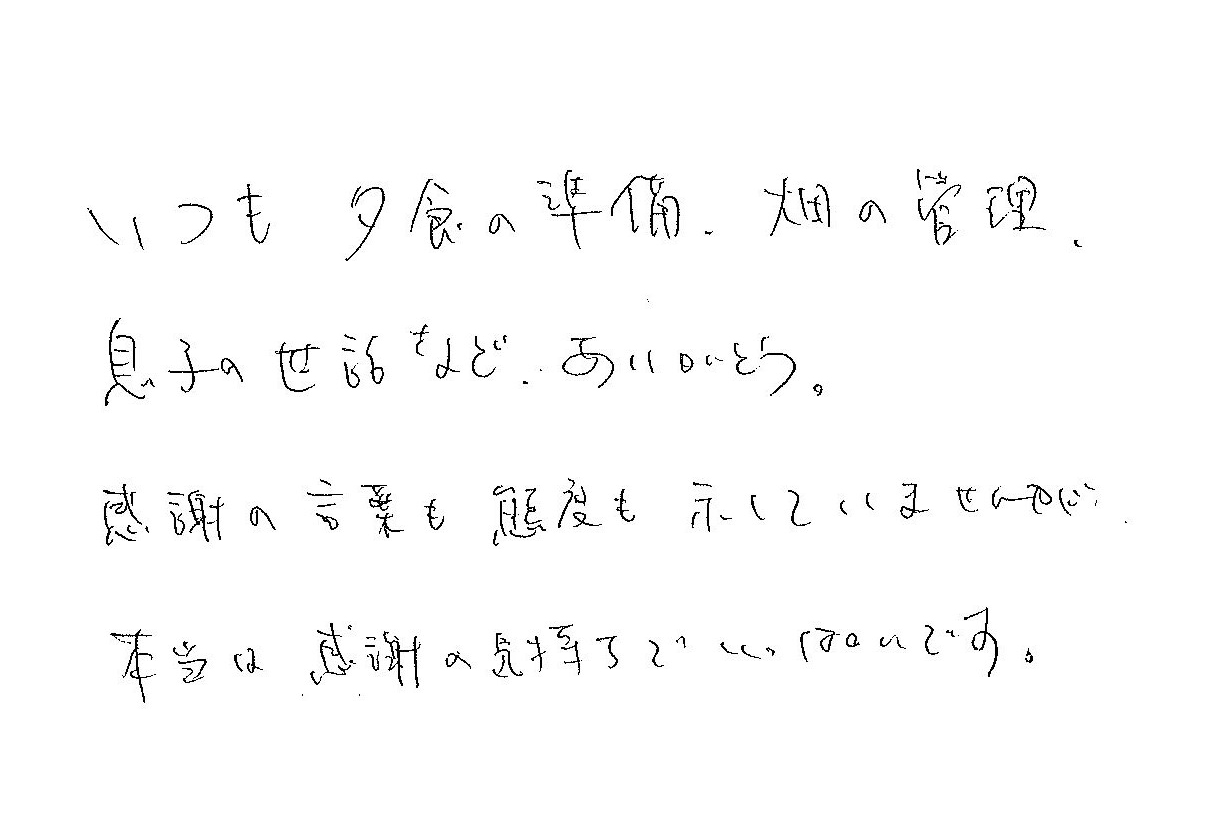 いつも 夕食の準備、畑の管理、
息子の世話など、ありがとう。
感謝の言葉も態度も 示していませんが、
本当は 感謝の気持ちでいっぱいです。